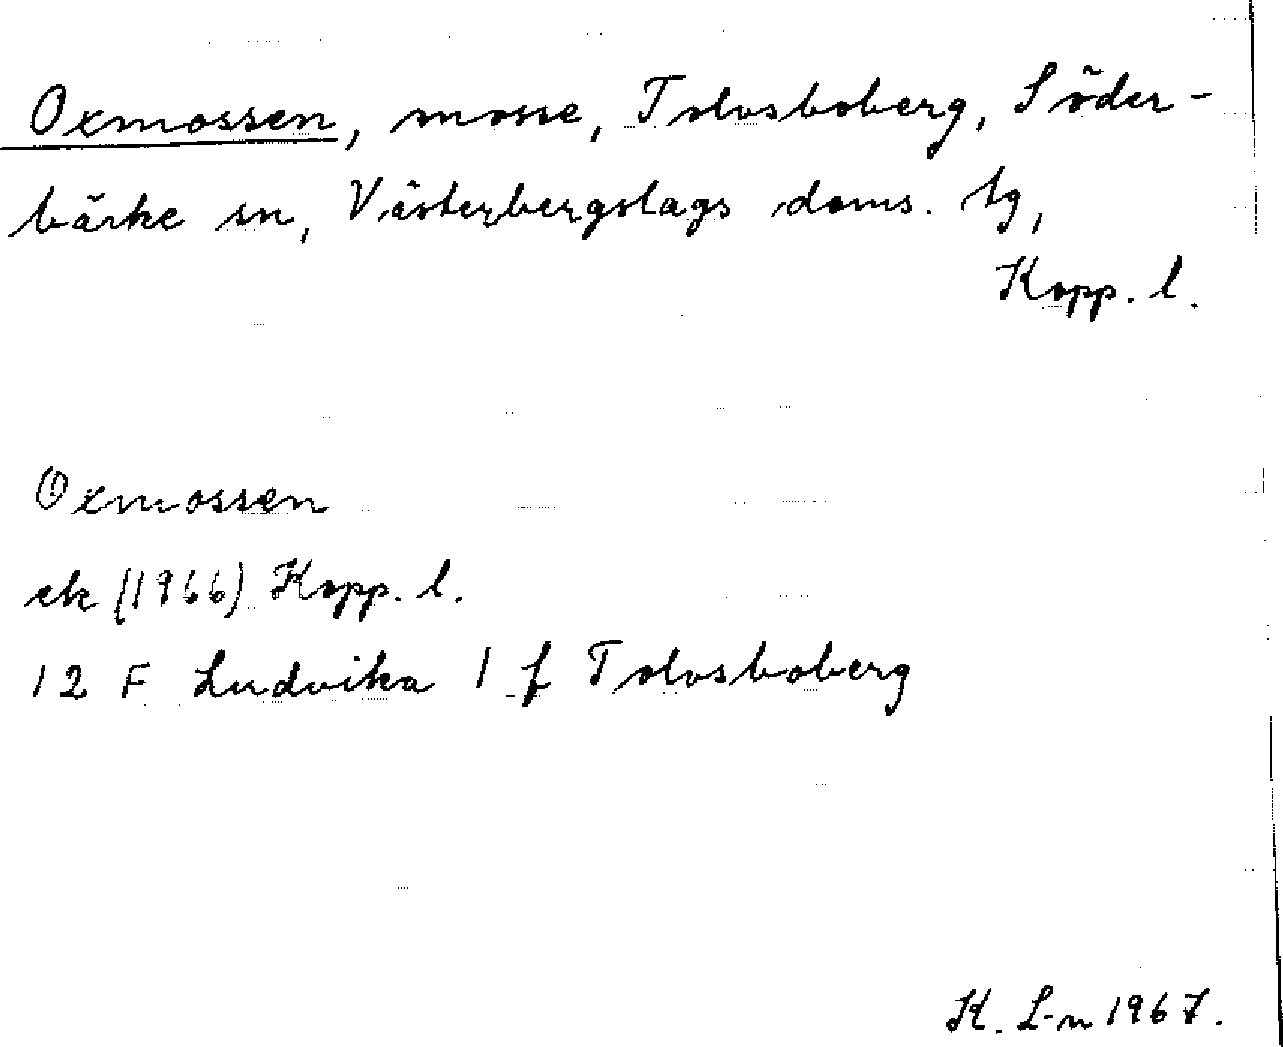 Oxmossen, mosse, Tolvsboberg, Söder-
bärke sn, Västerbergslags doms. tg,
Kopp. l.
Oxmossen
ek (1966) Kopp. l.
12 F Ludvika 1 f Tolvsboberg
K. L-n 1967.